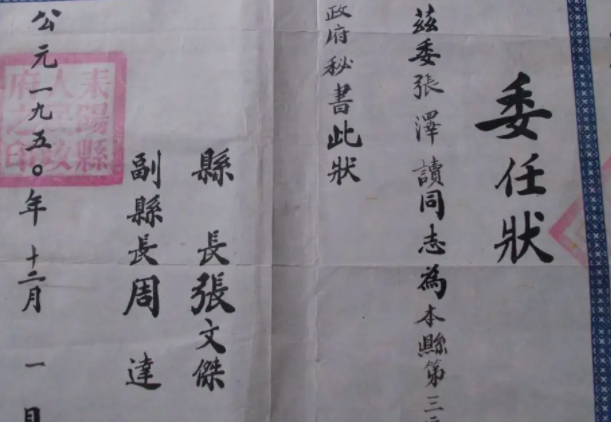 委任狀
茲委張澤讀同志為本縣第三
政府秘書此狀
縣長張文傑
副縣長周達
公元一九五〇年十二月一日
耒陽縣人民政府之印